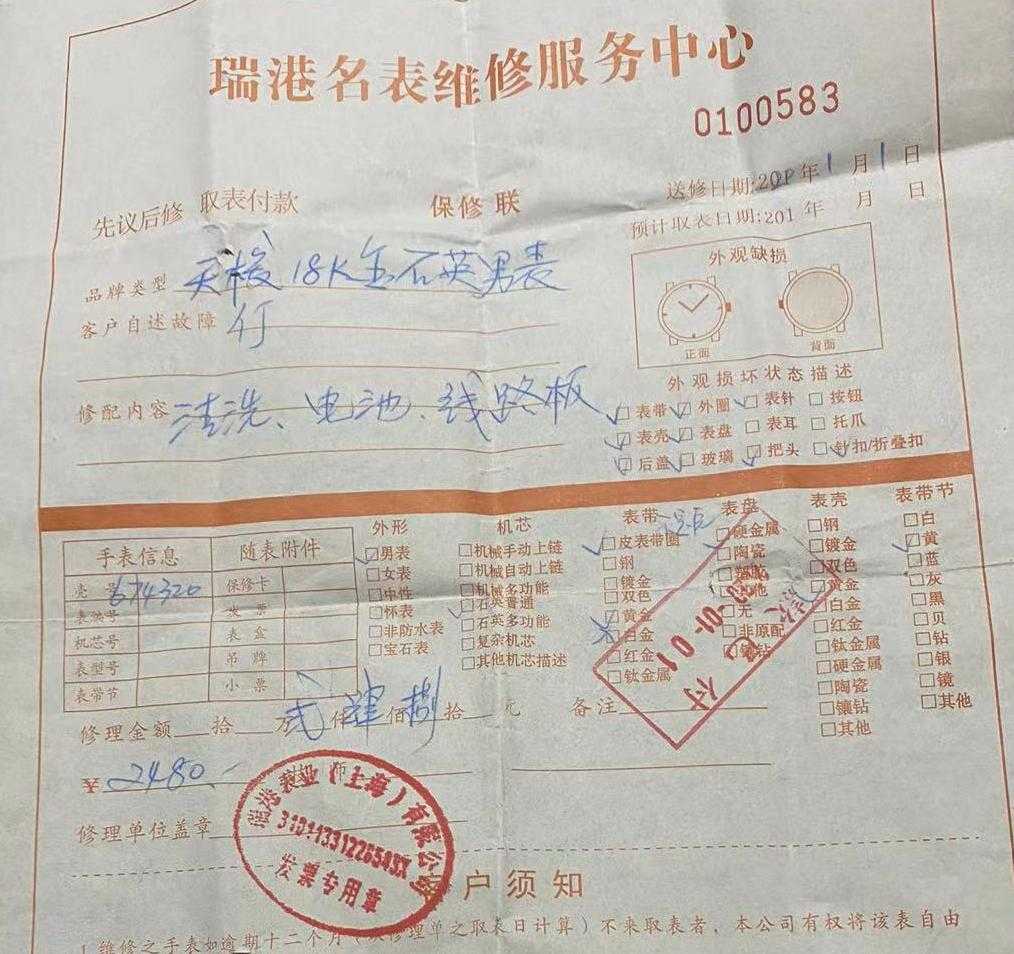 瑞港名表维修服务中心
0100583
送修日期:201 年1月1日
先议后修 取表付款 保修联
预计取表日期:201 年 月 日
品牌类型 天梭18K金石英男表
客户自述故障 行
外观缺损
正面 背面
修配内容 清洗、电池、线路板
外观损坏状态描述
表带 外圈 表针 按钮
表壳 表盘 表耳 托爪
后盖 玻璃 把头 针扣/折叠扣
手表信息 随表附件
壳号 674320 保修卡
表独号 发票
机芯号 表盒
表型号 吊牌
表带节 小票
外形
男表
女表
中性
怀表
非防水表
宝石表
机芯
机械手动上链
机械自动上链
机械多功能
石英普通
石英多功能
复杂机芯
其他机芯描述
表带
皮表带圈
钢
镀金
双色
黄金
白金
红金
钛金属
表盘
硬金属
陶瓷
塑胶
其他
无
非原配
镶钻
表壳
钢
镀金
双色
黄金
白金
红金
钛金属
硬金属
陶瓷
镶钻
其他
表带节
白
黄
蓝
灰
黑
贝
钻
银
镜
其他
修理金额 拾 万 贰 仟 肆 佰 捌 拾 元 备注
2480.-
修理单位盖章
瑞港表业(上海)有限公司
发票专用章
客户须知
1.维修之手表如逾期十二个月(从修理单之取表日计算)不来取表者,本公司有权将该表自由